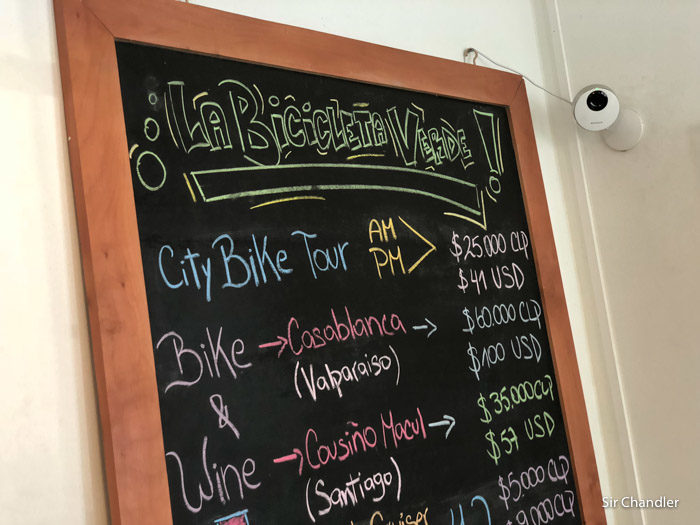 ¡La Bicicleta Verde!
City Bike Tour AM PM $25.000 CLP
$41 USD
Bike → Casablanca → $60.000 CLP
(Valparaiso) $100 USD
&
Wine → Cousiño Macul → $35.000 CLP
(Santiago) $57 USD
Cruiser $5.000 CLP
9.000 CLP
Sir Chandler